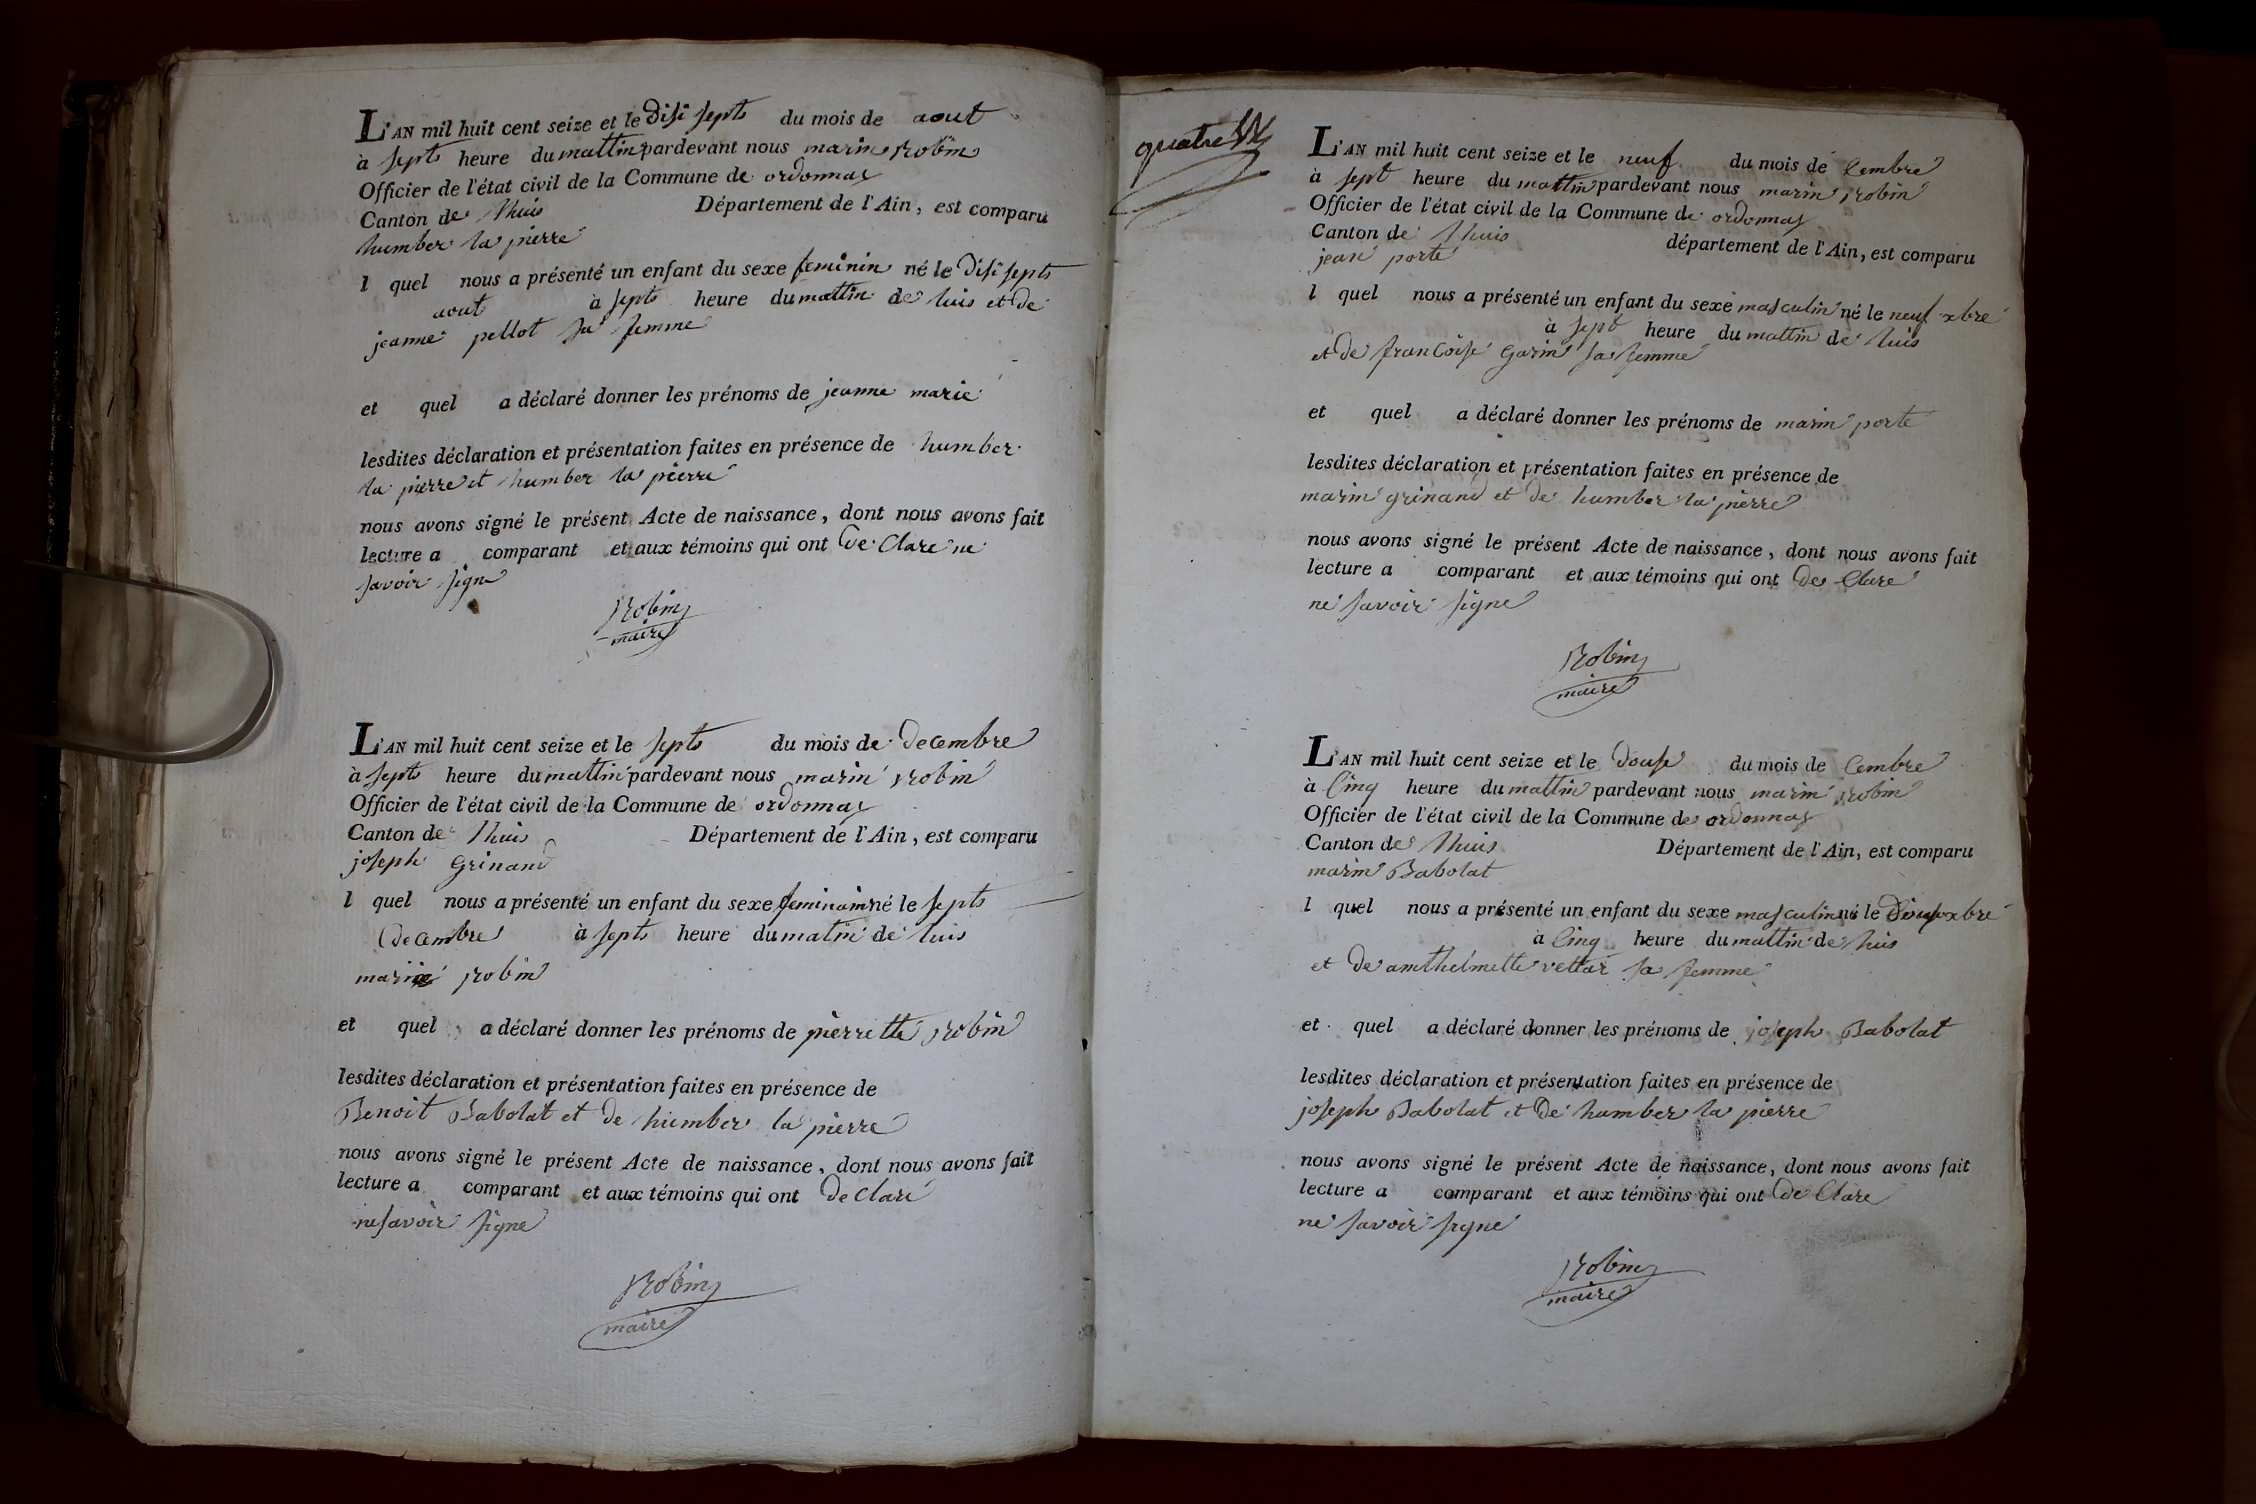 L'AN mil huit cent seize et le disi septs du mois de aout
à septs heure du mattin pardevant nous marin robin
Officier de l'état civil de la Commune de ordonnax
Canton de lhuis Département de l'Ain, est comparu
humber la pierre
l quel nous a présenté un enfant du sexe feminin né le disi septs
aout à septs heure du mattin de luis et de
jeanne pellot sa femme
et quel a déclaré donner les prénoms de jeanne marie
lesdites déclaration et présentation faites en présence de humber
la pierre et humber la pierre
nous avons signé le présent Acte de naissance, dont nous avons fait
lecture a comparant et aux témoins qui ont de Clare ne
savoir signe
Robin
maire
L'AN mil huit cent seize et le septs du mois de decembre
à septs heure du mattin pardevant nous marin robin
Officier de l'état civil de la Commune de ordonnax
Canton de lhuis Département de l'Ain, est comparu
joseph Grinand
l quel nous a présenté un enfant du sexe feminain né le septs
decembre à septs heure du matin de luis
marie robin
et quel a déclaré donner les prénoms de pierrette robin
lesdites déclaration et présentation faites en présence de
Benoit Babolat et de humber la pierre
nous avons signé le présent Acte de naissance, dont nous avons fait
lecture a comparant et aux témoins qui ont de Claré
ne savoir signe
Robin
maire
quatre
L'AN mil huit cent seize et le neuf du mois de Cembre
à sept heure du mattin pardevant nous marin robin
Officier de l'état civil de la Commune de ordonnax
Canton de lhuis département de l'Ain, est comparu
jean porte
l quel nous a présenté un enfant du sexe masculin né le neuf xbre
à sept heure du mattin de luis
et de francoise Garin sa femme
et quel a déclaré donner les prénoms de marin porte
lesdites déclaration et présentation faites en présence de
marin grinand et de humber la pierre
nous avons signé le présent Acte de naissance, dont nous avons fait
lecture a comparant et aux témoins qui ont de Clare
ne savoir signe
Robin
maire
L'AN mil huit cent seize et le douse du mois de Cembre
à Cinq heure du mattin pardevant nous marin robin
Officier de l'état civil de la Commune de ordonnax
Canton de lhuis Département de l'Ain, est comparu
marin Babolat
l quel nous a présenté un enfant du sexe masculin né le xbre
à Cinq heure du mattin de luis
et de amthelmette vettar sa femme
et quel a déclaré donner les prénoms de joseph Babolat
lesdites déclaration et présentation faites en présence de
joseph Babolat et de humber la pierre
nous avons signé le présent Acte de naissance, dont nous avons fait
lecture a comparant et aux témoins qui ont de Clare
ne savoir signe
Robin
maire